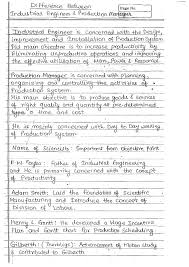 Difference Between
Industrial Engineer & Production Manager
Page No.
Industrial Engineer is concerned with the Design,
Improvement and Installation of Production System
His main objective is to increase productivity by
eliminating unproductive operations and improving
the effective utilisation of Men, &
Production Manager is concerned with planning
organising and controlling the activities of
Production System.
His main objective is to produce goods & services
of right quality and quantity at pre-determined
time and cost.
He is mainly concerned with Day to Day working
of Production System.
Name of Scientists Important from objective
F.W. Taylor : Father of Industrial Engineering
and He is primarily concerned with the concept
of Productivity
Adam Smith : Laid the foundation of Scientific
Manufacturing and Introduce the concept of
Division of Labour.
Henry L. Gantt : He developed a Wage Incentive
Plan and Gantt chart for Production Scheduling
Gilberth : Achievement of Motion study
is contributed to Gilberth